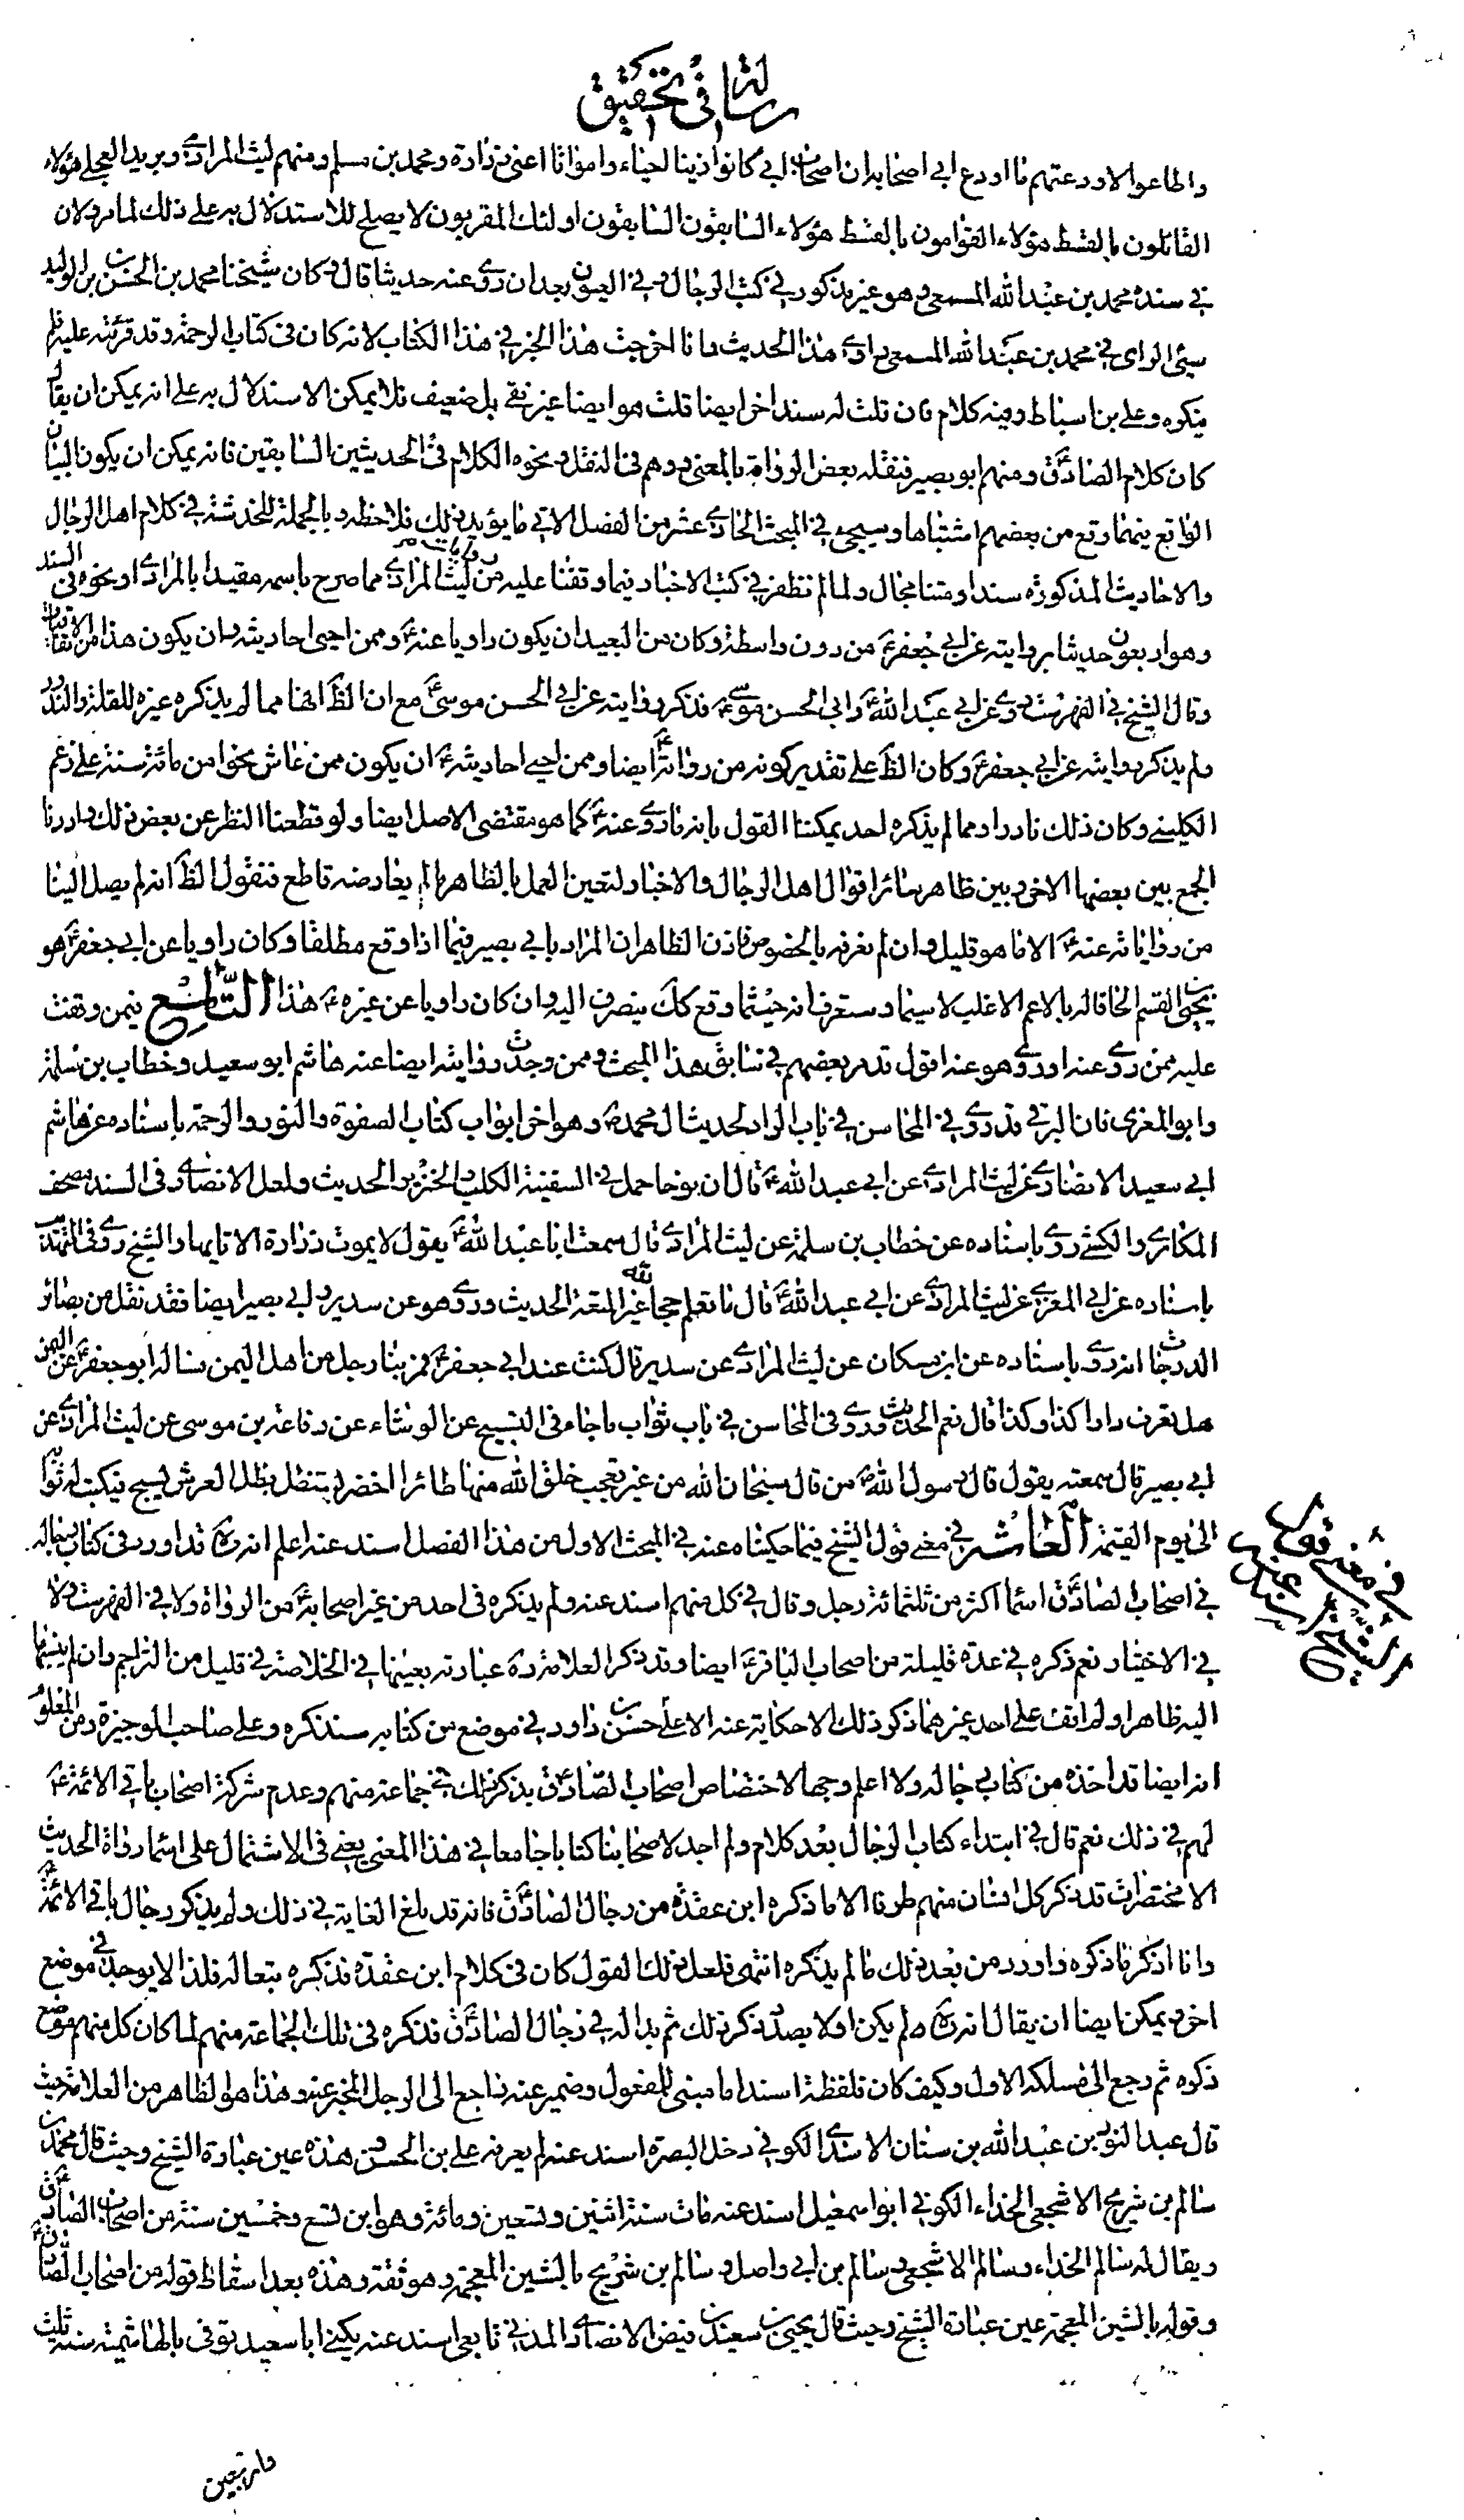 رسالة في تحقيق
واطاعوا لاودعتهم ما اودع ابي اصحابه ان اصحاب ابي كانوا زينا احياء وامواتا اعنى زرارة ومحمد بن مسلم ومنهم ليث المرادى وبريد العجلى هؤلاء
القائلون بالقسط هؤلاء القوامون بالقسط هؤلاء السابقون السابقون اولئك المقربون لا يصلح للاستدلال به على ذلك لما مر ولان
في سنده محمد بن عبد الله المسمعى وهو غير مذكور في كتب الرجال وفي العيون بعد ان روى عنه حديثا قال وكان شيخنا محمد بن الحسن بن الوليد
سيئ الراى في محمد بن عبد الله المسمعى راوى هذا الحديث وانا اخرجت هذا الخبر في هذا الكتاب لانه كان في كتاب الرحمة وقد قرئته عليه فلم
ينكره وعلى بن اسباط وفيه كلام فان قلت له سند اخر ايضا قلت هو ايضا غير نقى بل ضعيف فلا يمكن الاستدلال به على انه يمكن ان يقال
كان كلام الصادق ومنهم ابو بصير فنقله بعض الرواة بالمعنى ووهم في النقل ونحوه الكلام في الحديثين السابقين فانه يمكن ان يكون البيان
الواقع فيهما وقع من بعضهم اشتباها وسيجئ في المبحث الحادى عشر من الفصل الاتى ما يؤيد ذلك فلاحظه وبالجملة للخدشة في كلام اهل الرجال
والاحاديث المذكورة سندا ومتنا مجال ولما لم نظفر في كتب الاخبار فيما وقفنا عليه من روايات ليث المرادى مما صرح باسمه مقيدا بالمرادى او نحوه في السند
وهو اربعون حديثا بروايته عن ابي جعفر ع من دون واسطة وكان من البعيد ان يكون راويا عنه ع وممن احيى احاديثه وان يكون هذا من الاتفاقات
وقال الشيخ في الفهرست روى عن ابي عبد الله ع وابي الحسن موسى ع فذكر روايته عن ابي الحسن موسى ع مع ان الظ انها مما لم يذكره غيره للقلة والندور
ولم يذكر روايته عن ابي جعفر ع وكان الظ على تقدير كونه من رواته ع ايضا وممن احيى احاديثه ع ان يكون ممن عاش نحوا من مائة سنة على زعم
الكلينى وكان ذلك نادرا ومما لم يذكره احد يمكننا القول بانه ما روى عنه ع كما هو مقتضى الاصل ايضا ولو قطعنا النظر عن بعض ذلك واردنا
الجمع بين بعضها الاخر وبين ظاهر سائر اقوال اهل الرجال والاخبار لتعين العمل بالظاهر ما لم يعارضه قاطع فنقول الظ انه لم يصل الينا
من رواياته عنه ع الا ما هو قليل وان لم نعرفه بالخصوص فاذن الظاهر ان المراد بابي بصير فيما اذا وقع مطلقا وكان راويا عن ابي جعفر ع هو
يحيى بن القسم الحاقا له بالاعم الاغلب لا سيما وستعرف انه حيثما وقع كك ينصرف اليه وان كان راويا عن غيره ع هذا التاسع فيمن وقفت
عليه ممن روى عنه او روى هو عنه اقول قد مر بعضهم في سابق هذا المبحث وممن وجدت روايته ايضا عنه هاشم ابو سعيد وخطاب بن سلمة
وابو المغرى فان البرقى قد روى في المحاسن في باب الراد لحديث ال محمد ص وهو اخر ابواب كتاب الصفوة والنور والرحمة باسناده عن هاشم
ابي سعيد الانصارى عن ليث المرادى عن ابي عبد الله ع قال ان نوحا حمل في السفينة الكلب والخنزير الحديث ولعل الانصارى في السند مصحف
المكارى والكشى روى باسناده عن خطاب بن سلمة عن ليث المرادى قال سمعت ابا عبد الله ع يقول لا يموت زرارة الا تايها والشيخ روى في التهذيب
باسناده عن ابي المغرى عن ليث المرادى عن ابي عبد الله ع قال ما نعلم حجا لله غير المتعة الحديث وروى هو عن سدير وابي بصير ايضا فقد نقل من بصائر
الدرجات انه روى باسناده عن ابن مسكان عن ليث المرادى عن سدير قال كنت عند ابي جعفر ع فمر بنا رجل من اهل اليمن فساله ابو جعفر ع عن اليمن
هل تعرف دارا كذا وكذا قال نعم الحديث وروى في المحاسن في باب ثواب ما جاء في التسبيح عن الوشاء عن رفاعة بن موسى عن ليث المرادى عن
ابي بصير قال سمعته يقول قال رسول الله ص من قال سبحان الله من غير تعجب خلق الله منها طائرا اخضر يستظل بظل العرش يسبح فيكتب له ثوابه
الى يوم القيمة العاشر في معنى قول الشيخ فيما حكيناه عنه في المبحث الاول من هذا الفصل اسند عنه اعلم انه ره قد اورد في كتاب رجاله
في اصحاب الصادق ع اسماء اكثر من ثلثمائة رجل وقال في كل منهم اسند عنه ولم يذكره في احد من غير اصحابه ع من الرواة ولا في الفهرست ولا
في الاختيار نعم ذكره في عدة قليلة من اصحاب الباقر ع ايضا وقد ذكر العلامة ره عبارته بعينها في الخلاصة في قليل من التراجم وان لم ينسبها
اليه ظاهرا ولم اقف على احد غيرهما ذكر ذلك الا حكاية عنه الا على حسن بن داود في موضع من كتابه سنذكره وعلى صاحب الوجيزة ومن المعلوم
انه ايضا قد اخذه من كتاب رجاله ولا اعلم وجها لاختصاص اصحاب الصادق ع بذكر ذلك في جماعة منهم وعدم شركة اصحاب باقى الائمة ع
لهم في ذلك نعم قال في ابتداء كتاب الرجال بعد كلام ولم اجد لاصحابنا كتابا جامعا في هذا المعنى يعنى في الاشتمال على اسماء رواة الحديث
الا مختصرات قد ذكر كل انسان منهم طرفا الا ما ذكره ابن عقدة من رجال الصادق ع فانه قد بلغ الغاية في ذلك ولم يذكر رجال باقى الائمة ع
وانا اذكر ما ذكره واورد من بعد ذلك ما لم يذكره انتهى فلعل ذلك القول كان في كلام ابن عقدة فذكره بتعا له فلذا لا يوجد في موضع
اخر ويمكن ايضا ان يقال انه ره لم يكن اولا بصدد ذكر ذلك ثم بدا له في رجال الصادق ع فذكره في تلك الجماعة منهم لما كان كل منهم موضع
ذكره ثم رجع الى مسلكه الاول وكيف كان فلفظة اسند اما مبنى للمفعول وضمير عنه راجع الى الرجل المخبر عنه وهذا هو الظاهر من العلامة حيث
قال عبد النور بن عبد الله بن سنان الاسدى الكوفى دخل البصرة اسند عنه لم يعرفه على بن الحسن وهذه عين عبارة الشيخ وحيث قال محمد بن
سالم بن شريح الاشجعى الحذاء الكوفى ابو اسمعيل اسند عنه مات سنة اثنين وتسعين ومائة وهو ابن تسع وخمسين سنة من اصحاب الصادق ع
ويقال له سالم الحذاء وسالم الاشجعى وسالم بن ابي واصل وسالم بن شريح بالشين المعجمة وهو ثقة وهذه بعد اسقاط قوله من اصحاب الصادق ع
وقوله بالشين المعجمة عين عبارة الشيخ وحيث قال يحيى بن سعيد بن فيض الانصارى المدنى تابعى اسند عنه يكنى ابا سعيد توفى بالهاشمية سنة ثلث
في معنى قول
الشيخ اسند عنه
واربعين